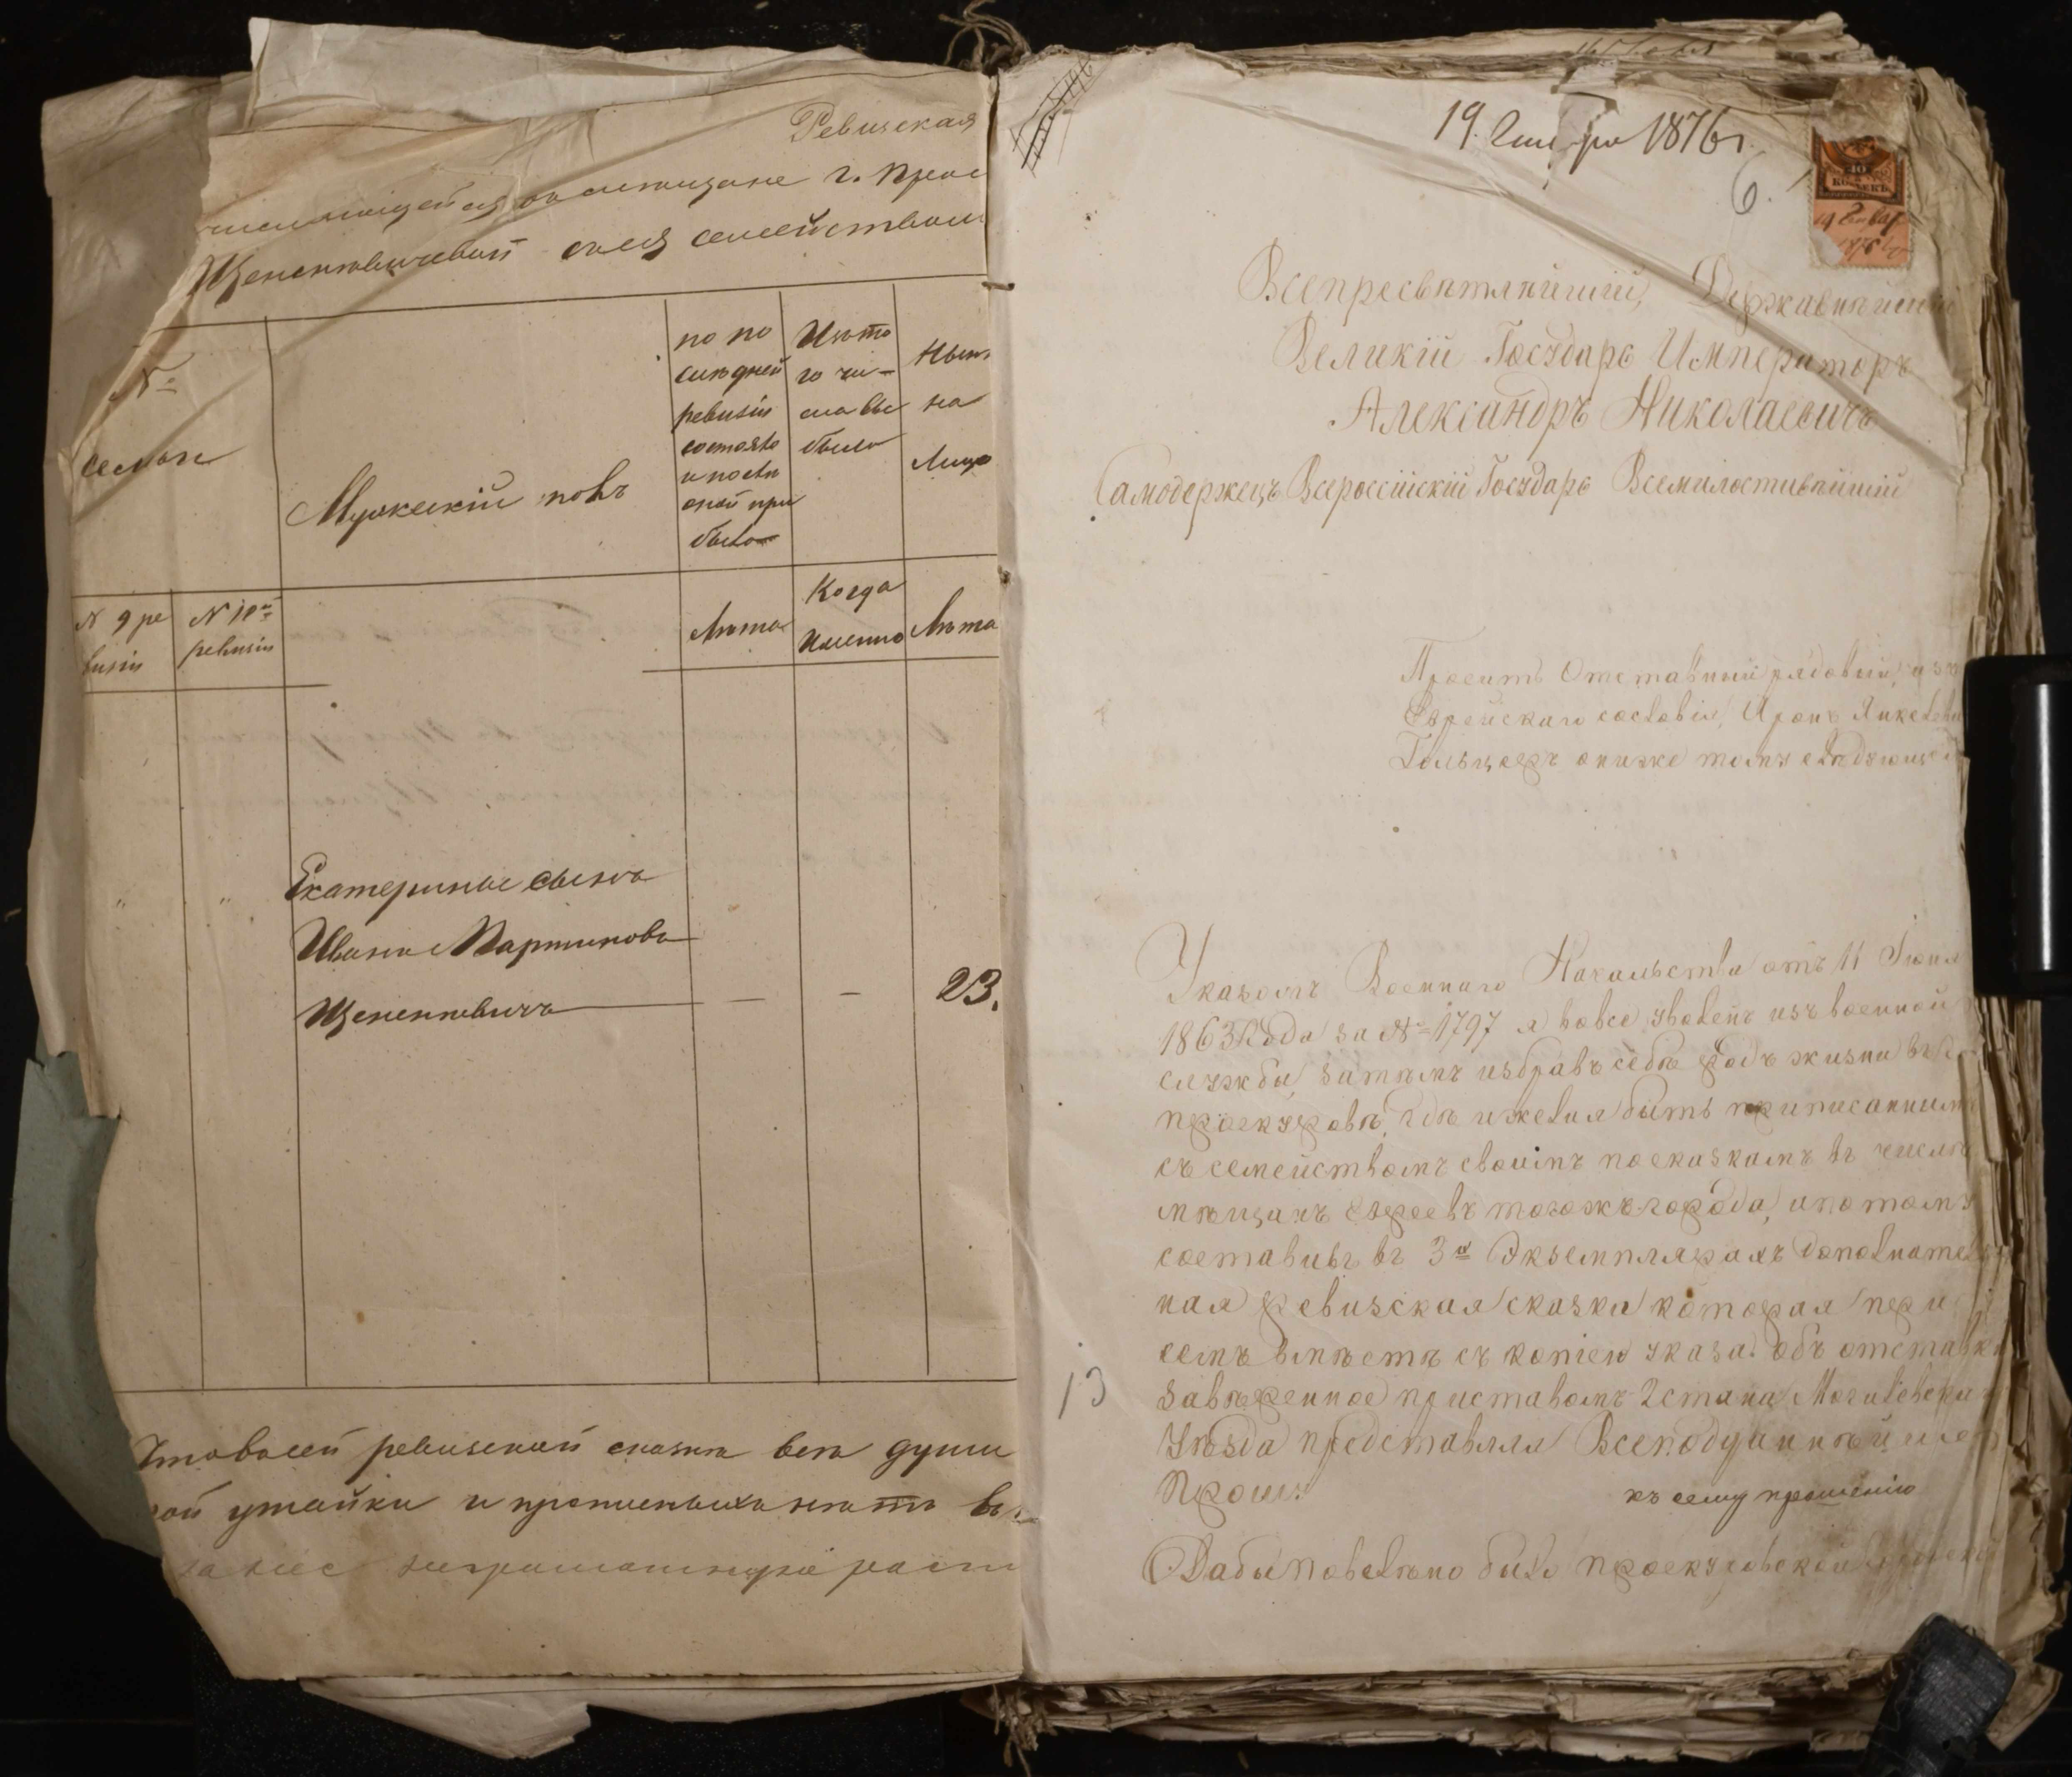 Ревизская
мещане г. Прос
Щепентовичевой съ ея семействомъ
№
семьи
Мужескій полъ
по по
слѣдней
ревизіи
состояло
и послѣ
оной при
было
Изъ то
го чи-
сла вы
было
Нынѣ
на
Лицо
N 9 ре
визіи
N 10й
ревизіи
Лѣта
Когда
Именно
Лѣта
" " Екатерины сынъ
Иванъ Мартиновъ
Щепентовичъ — — 23.
Что въ сей ревизской сказкѣ всѣ души
утайки и прописныхъ нѣтъ въ
19. Генваря 1876 г.
6.
10
КОПѢЕКЪ
19 Январ
1876
Всепресвѣтлѣйшій, Державнѣйшій
Великій Государь Императоръ
Александръ Николаевичъ
Самодержецъ Всероссійскій Государь Всемилостивѣйшій
Проситъ Отставный рядовый, изъ
Еврейскаго сословія, Иронъ Янкелеви
Гольцеръ о ниже томъ слѣдующе
Указомъ Военнаго Начальства отъ 11 Іюня
1863 Года за №=1797 я вовсе уволенъ изъ военной
службы, затѣмъ избравъ себѣ родъ жизни въ г.
проскуровѣ, гдѣ и желая быть приписаннымъ
съ семействомъ своимъ по сказкамъ въ число
мѣщанъ Евреевъ тогожъ города, и потому
составивъ въ 3х Экземплярахъ дополнитель
ная ревизская сказка которая при
семъ вмѣстѣ съ копіею указа объ отставкѣ
завѣренное приставомъ 2 стана Могилевска
Уѣзда представляя Всеподданнѣйше
Прошу
къ сему прошенію
Дабы повелѣно было проскуровской
13